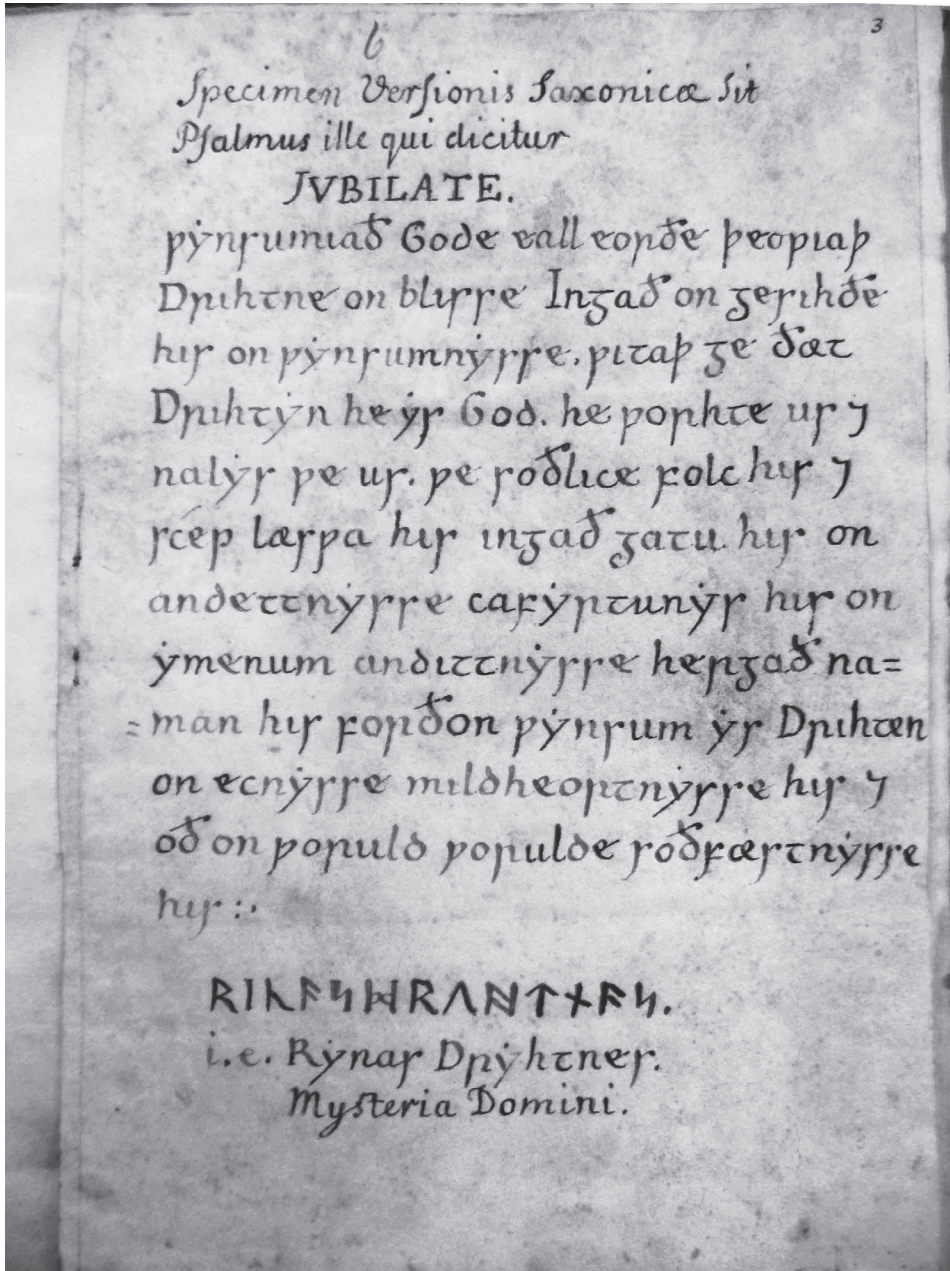 6
3
Specimen Versionis Saxonicæ sit
Psalmus ille qui dicitur
JVBILATE.
ƿẏnsumiað Gode eall eorðe þeoƿiaþ
Drihtne on blisse Ingað on gesihðe
his on ƿẏnsumnẏsse. ƿitaþ ge ðæt
Drihtẏn he ẏs God. he ƿorhte us ⁊
nalẏs ƿe us. ƿe soðlice folc his ⁊
scép læsƿa his ingað gatu his on
andettnẏsse cafẏrtunẏs his on
ẏmenum andittnẏsse hergað na=
=man his forðon ƿẏnsum ẏs Drihten
on ecnẏsse mildheortnẏsse his ⁊
oð on ƿoruld ƿorulde soðfæstnẏsse
his :·
ᚱᛁᚳᚨᛋᛞᚱᚢᚻᛏᚾᚨᛋ.
i.e. Rẏnas Drẏhtnes.
Mysteria Domini.